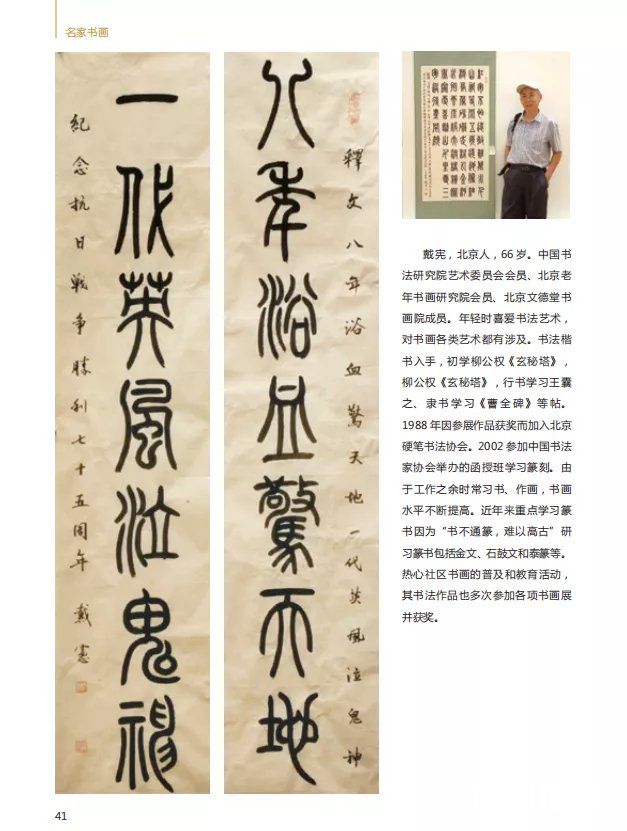 名家书画
八年浴血驚天地
釋文八年浴血驚天地一代英風泣鬼神
一代英風泣鬼神
紀念抗日戰争勝利七十五周年 戴憲
戴宪，北京人，66岁。中国书
法研究院艺术委员会会员、北京老
年书画研究院会员、北京文德堂书
画院成员。年轻时喜爱书法艺术，
对书画各类艺术都有涉及。书法楷
书入手，初学柳公权《玄秘塔》，
柳公权《玄秘塔》，行书学习王囊
之、隶书学习《曹全碑》等帖。
1988年因参展作品获奖而加入北京
硬笔书法协会。2002参加中国书法
家协会举办的函授班学习篆刻。由
于工作之余时常习书、作画，书画
水平不断提高。近年来重点学习篆
书因为“书不通篆，难以高古”研
习篆书包括金文、石鼓文和泰篆等。
热心社区书画的普及和教育活动，
其书法作品也多次参加各项书画展
并获奖。
41